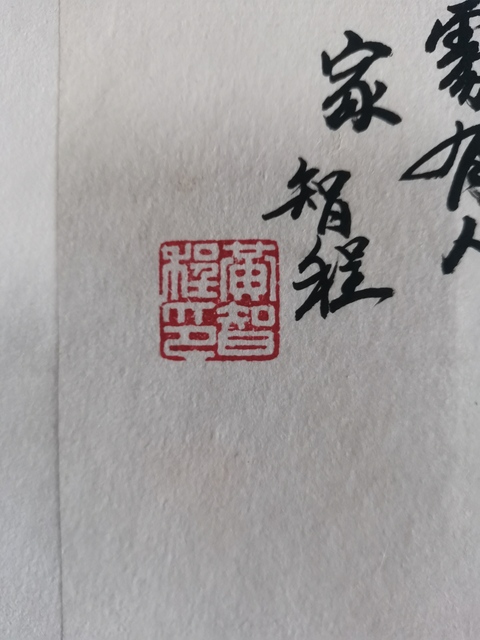 處有人
家
智程
黄智程印